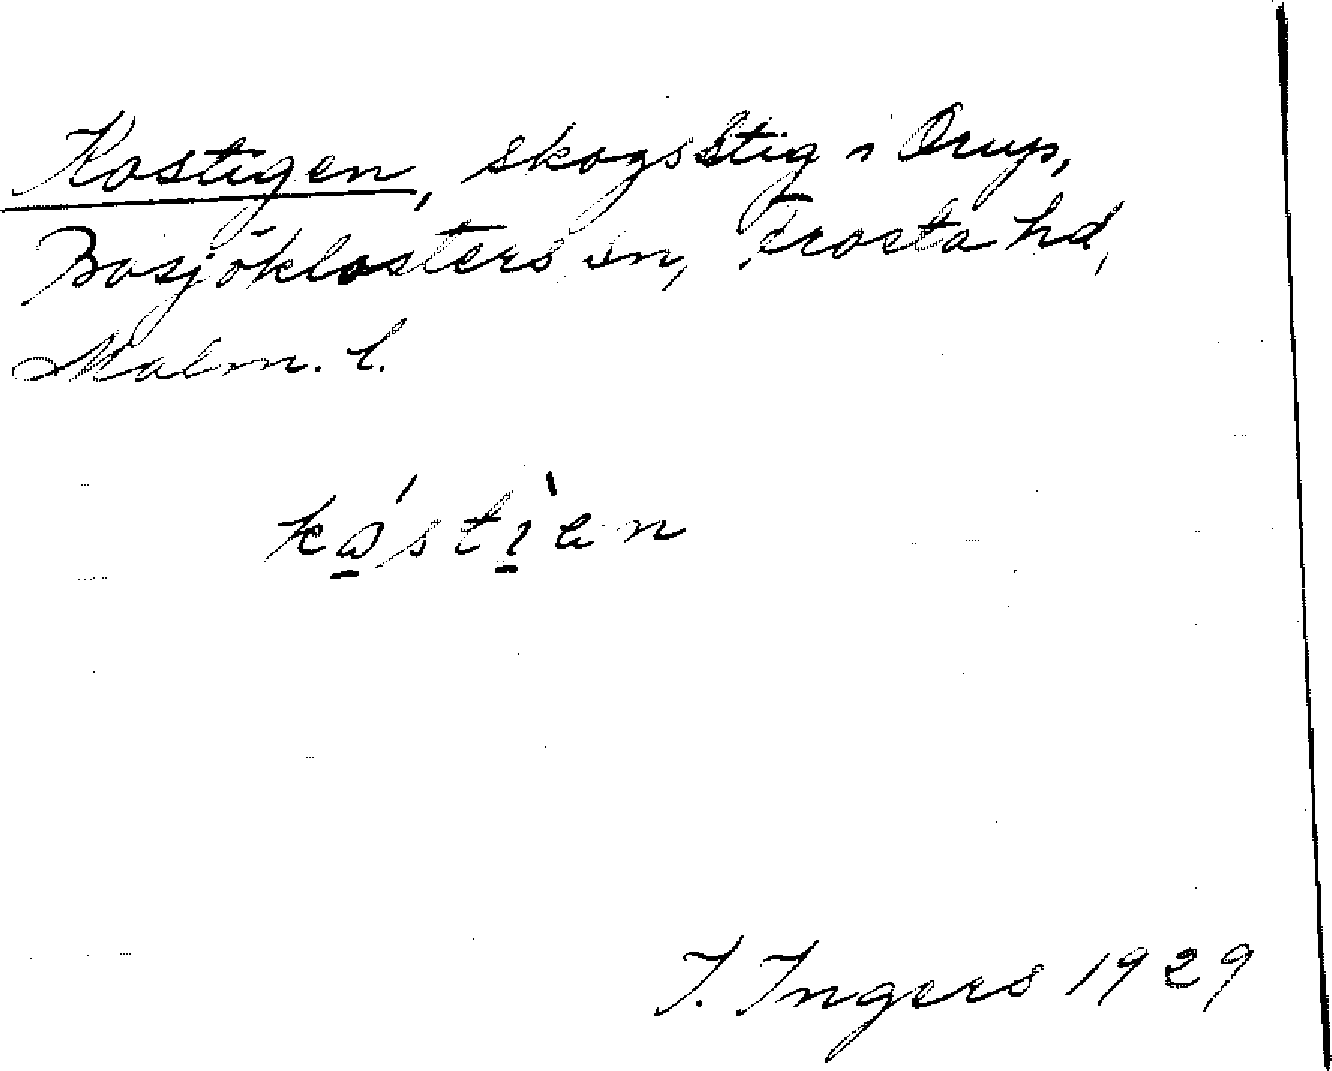 Kostigen, skogsstig i Orup,
Bosjöklosters sn, Frosta hd,
Malm. l.
ko̱´sti̱`en
I. Ingers 1929